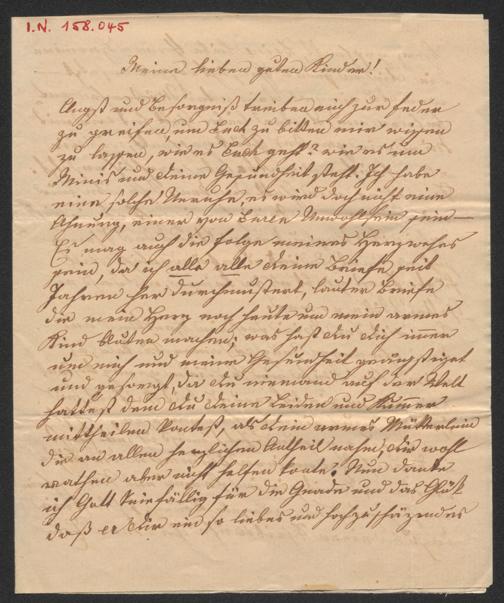 I.N. 158.045
Meine lieben guten Kinder!
Angst und Besorgniß treiben mich zur Feder
zu greifen um Euch zu bitten mir wissen
zu lassen, wie es Euch geht? wie es um
Minis und deine Gesundheit steht. Ich habe
eine solche Unruhe, es wird doch nicht eine
Ahnung, einer von Eurer Unwohlsein sein —
Es mag auch die Folge meines Herzwehes
sein, da ich alle alle deine Briefe seit
Jahren her durchmustert, lauter Briefe
die mein Herz noch heute um mein armes
Kind bluten machen; was hast du dich immer
um mich und meine Gesundheit geängstiget
und gesorgt, da du niemand auf der Welt
hattest dem du deine Leiden und Kummer
mittheilen kontest, als dein armes Mütterlein
die an allen herzlichen Antheil nahm, dir wohl
rathen aber nicht helfen konte? Nun danke
ich Gott kniefällig für die Gnade und das Glück
daß er dir ein so liebes und hochzuschäzendes